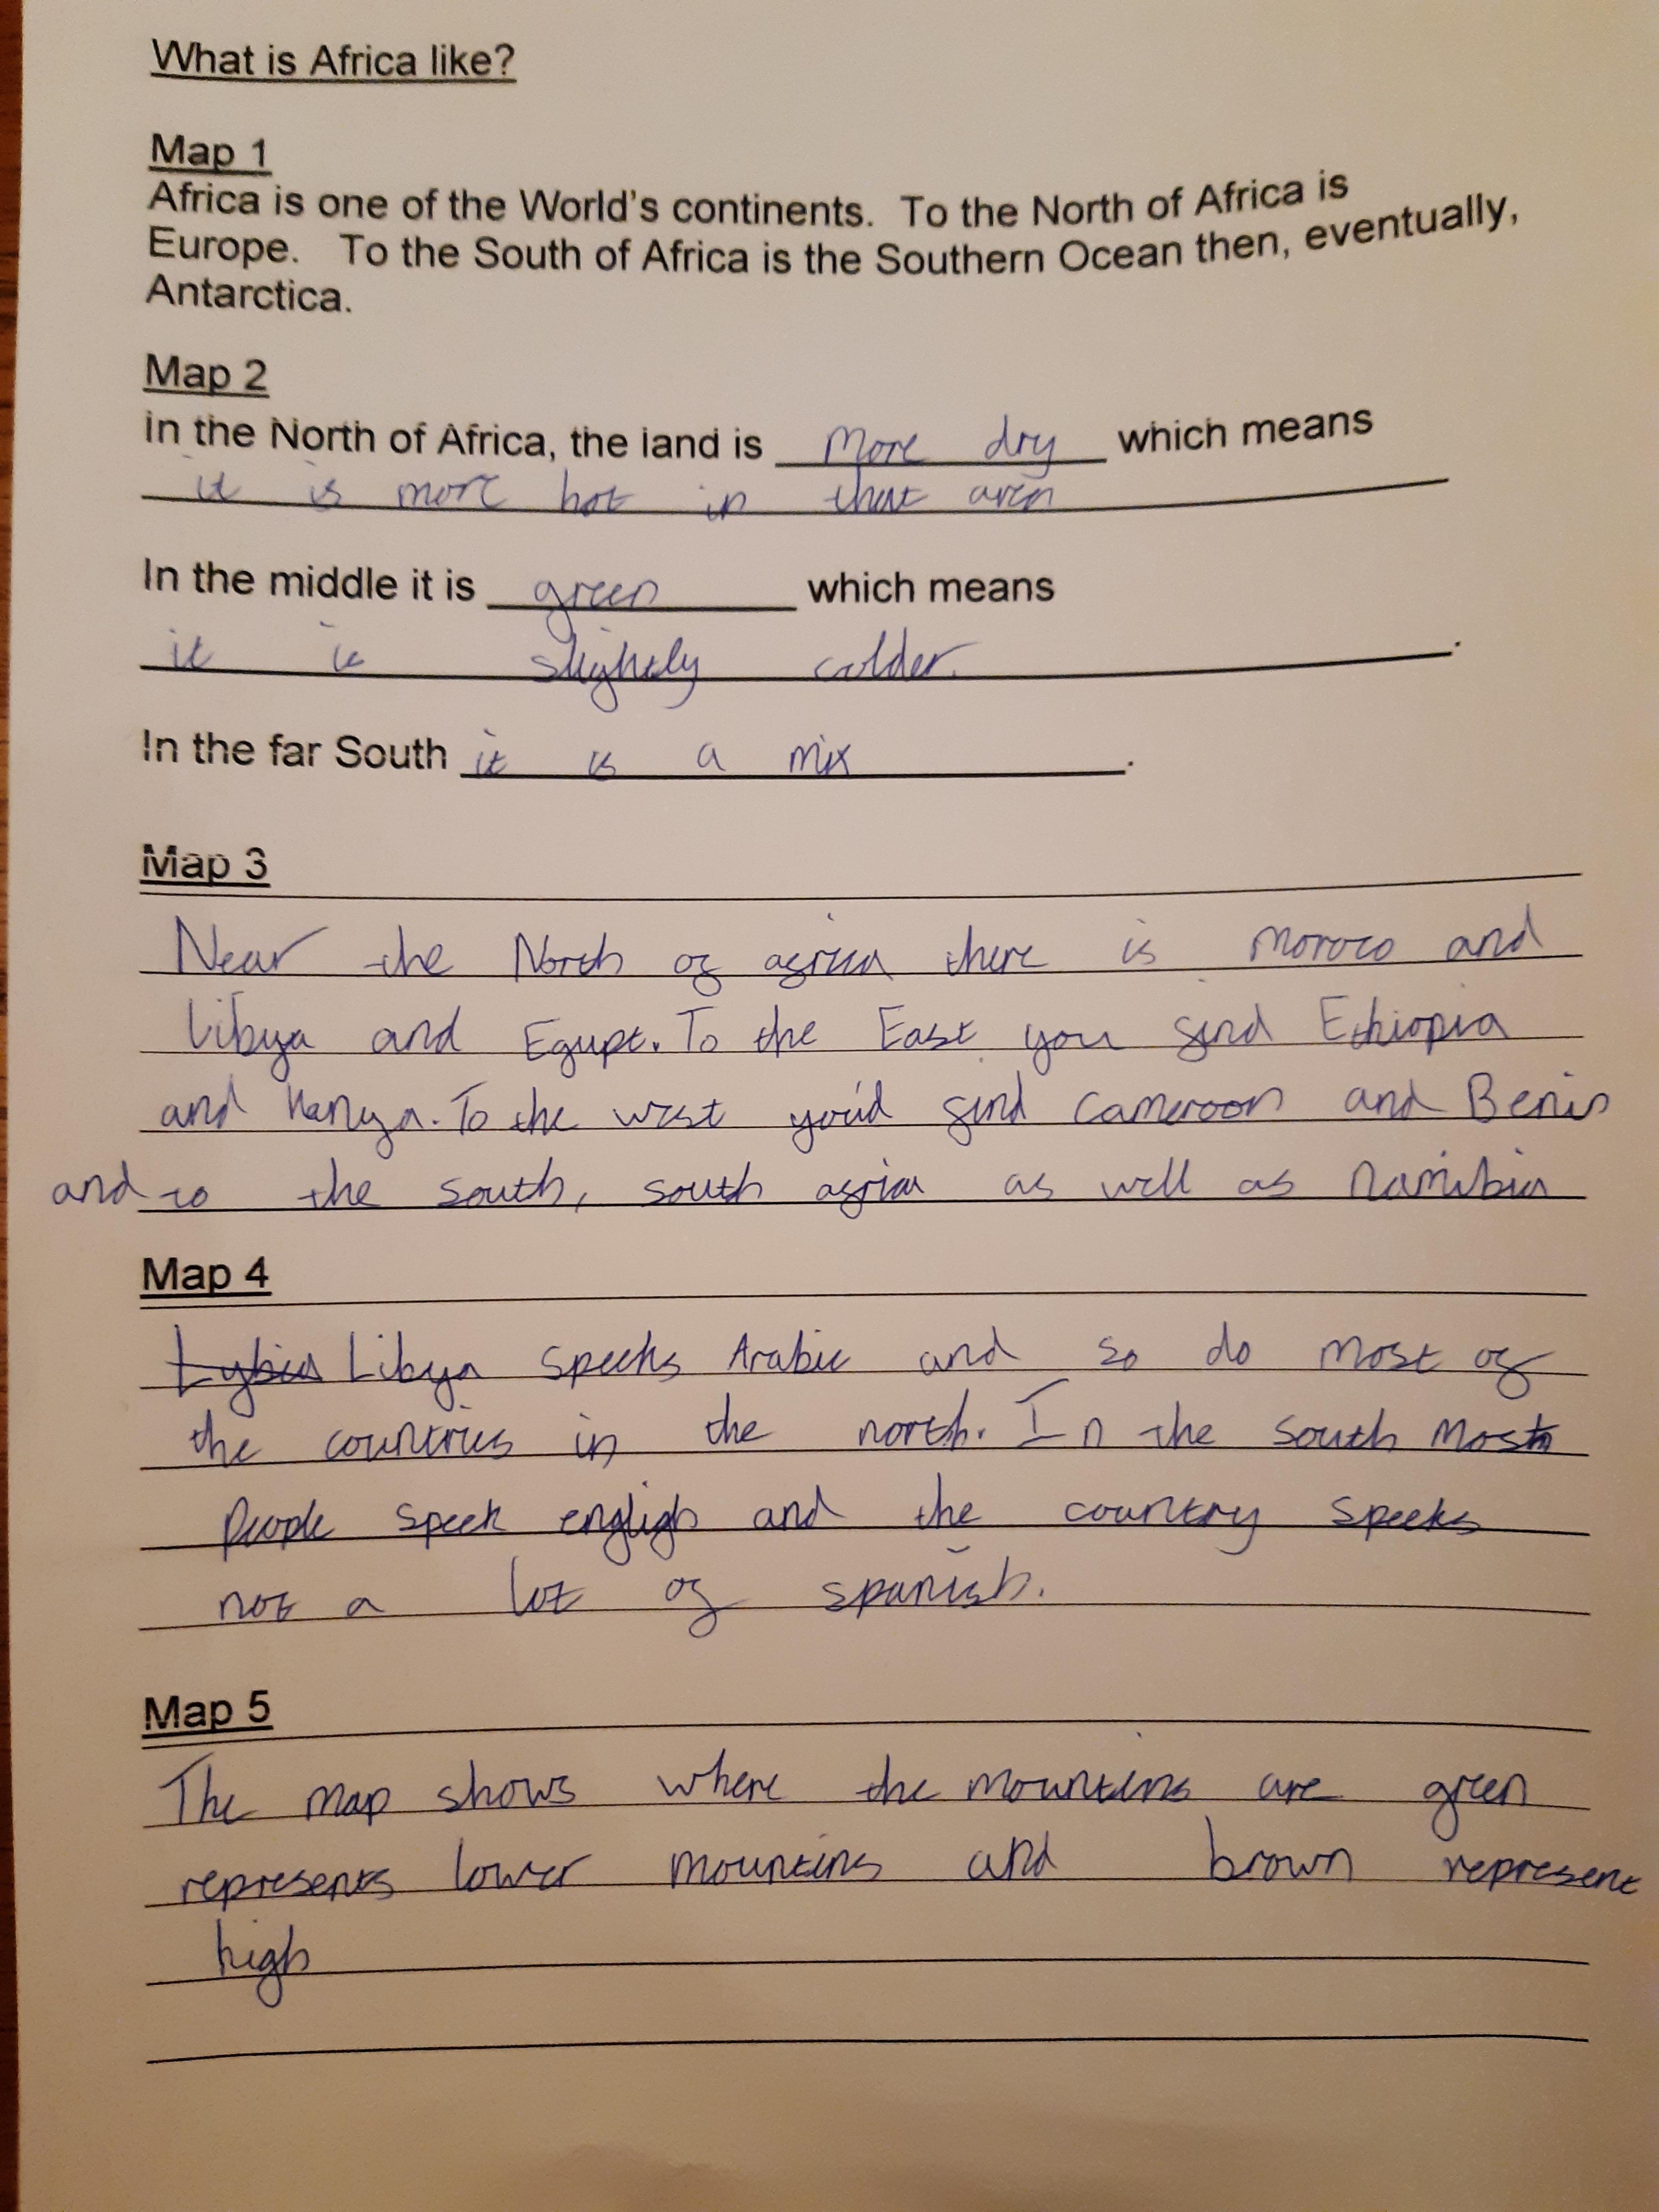 What is Africa like?
Map 1
Africa is one of the World's continents. To the North of Africa is
Europe. To the South of Africa is the Southern Ocean then, eventually,
Antarctica.
Map 2
In the North of Africa, the land is more dry which means
it is more hot in that area
In the middle it is green which means
it is slightly colder.
In the far South it is a mix.
Map 3
Near the North of africa there is Moroco and
Libya and Egupt. To the East you find Ethiopia
and Kenya. To the west you'd find Cameroon and Benin
and to the south, south africa as well as Namibia
Map 4
Lybia Libya speeks Arabic and so do most of
the countries in the north. In the south most
people speek english and the country speeks
not a lot of spanish.
Map 5
The map shows where the mountins are green
represents lower mountins and brown represent
high